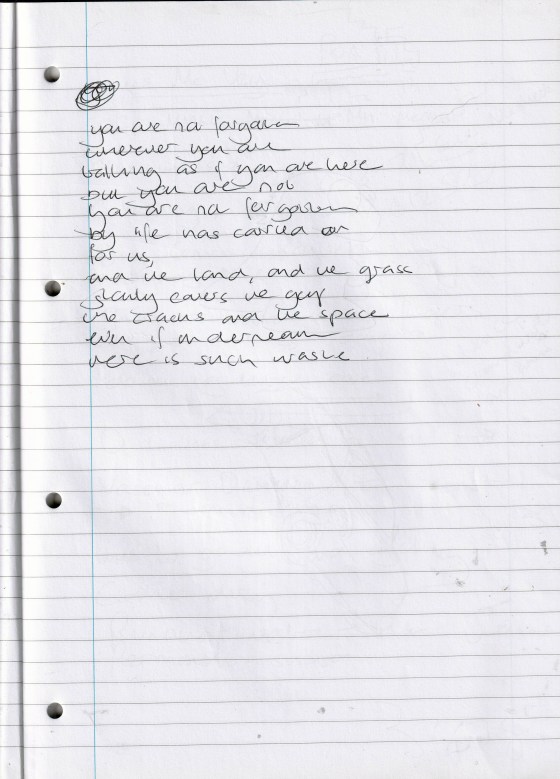 you are not forgotten
wherever you are
talking as if you are here
but you are not
you are not forgotten
by life has carried on
for us,
and the land, and the grass
slowly covers the gaps
the cracks and the space
even if underneath
there is such waste